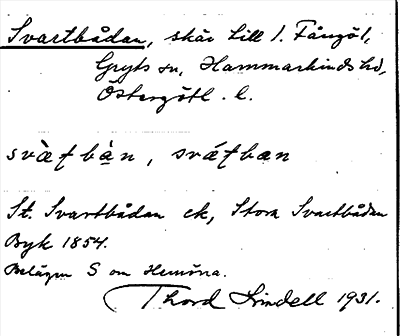 Svartbådan, skär till I. Fångöl,
Gryts sn, Hammarkinds hd,
Östergötl. l.
St. Svartbådan ek, Stora Svartbådan
Byk 1854.
Belägen S om Hemöra.
Thord Lindell 1931.